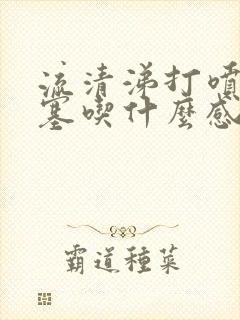 流清涕打噴
塞喫什麼感
霸道種菜